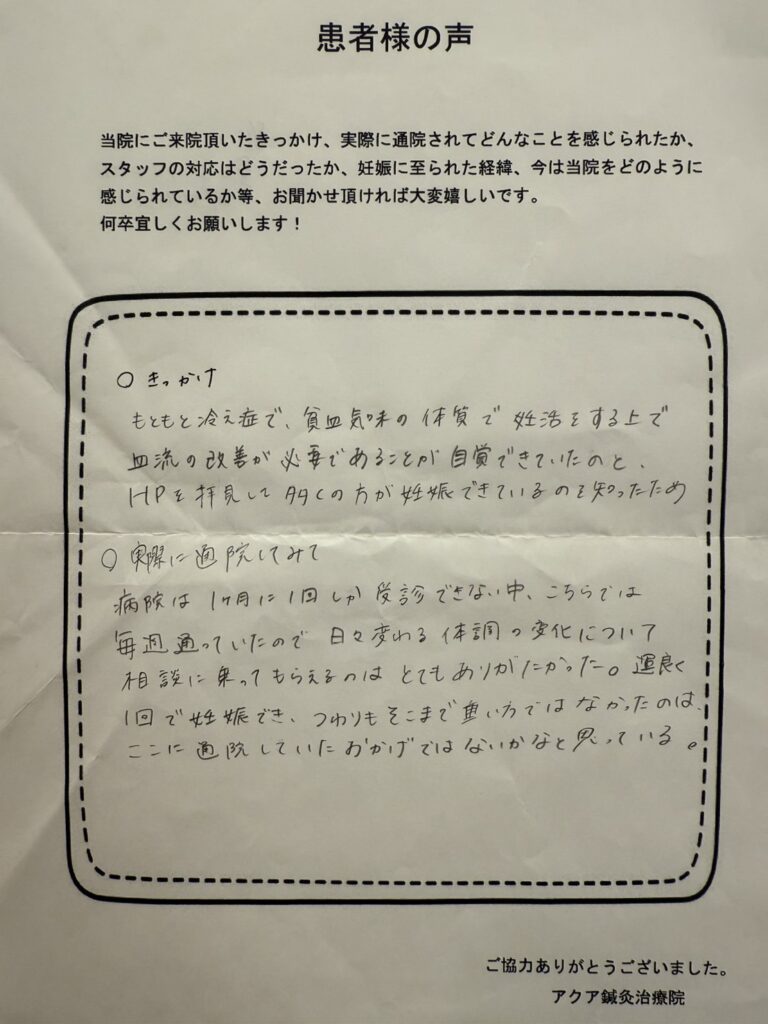 患者様の声
当院にご来院頂いたきっかけ、実際に通院されてどんなことを感じられたか、
スタッフの対応はどうだったか、妊娠に至られた経緯、今は当院をどのように
感じられているか等、お聞かせ頂ければ大変嬉しいです。
何卒宜しくお願いします！
○ きっかけ
もともと冷え症で、貧血気味の体質で妊活をする上で
血流の改善が必要であることが自覚できていたのと、
HPを拝見して多くの方が妊娠できているのを知ったため
○ 実際に通院してみて
病院は1ヶ月に1回しか受診できない中、こちらでは
毎週通っていたので日々変わる体調の変化について
相談に乗ってもらえるのはとてもありがたかった。運良く
1回で妊娠でき、つわりもそこまで重い方ではなかったのは、
ここに通院していたおかげではないかなと思っている。
ご協力ありがとうございました。
アクア鍼灸治療院